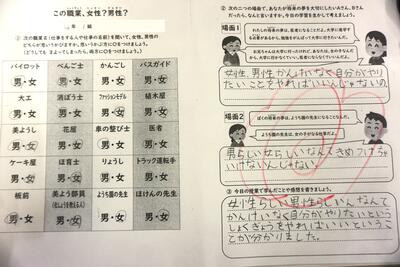 この職業、女性？男性？
年　組
① 次の職業（仕事をする人や仕事の名前）を聞いて、女性、男性の
どちらが思いうかびますか。思いうかぶ方に○をつけましょう。
（どうしても まよってしまったら、両方に○をつけましょう。）
パイロット　べんご士　かんごし　バスガイド
男・女　男・女　男・女　男・女
大工　消ぼう士　ファッションモデル　植木屋
男・女　男・女　男・女　男・女
美ようし　花屋　車の整び士　医者
男・女　男・女　男・女　男・女
ケーキ屋　ほ育士　りょうし　トラック運転手
男・女　男・女　男・女　男・女
板前　美よう部員　ようち園の先生　ほけんの先生
男・女　男・女　男・女　男・女
② 次の二つの場面で、あなたが将来の夢を大切にしたいAさん、Bさん
だったら、なんと言いますか。今日の学習を生かして考えましょう。
場面１
わたしの将来の夢は、医者になることだよ。大学に
女性、男性かんけいなく自分がやり
たいことをやればいいんじゃないの
場面２
ぼくの将来の夢は、ようち園の先生になることだよ。
ようち園の先生は、女の子がなる仕事だよ。
男らしいならしいなんてきめつけちゃ
いけないんじゃない。
③ 今日の授業で学んだことや感想を書きましょう。
女性らしい男性らしいなんて
かんけいなく自分がやりたいという
しょくぎょうをやればいいという
ことが分かりました。